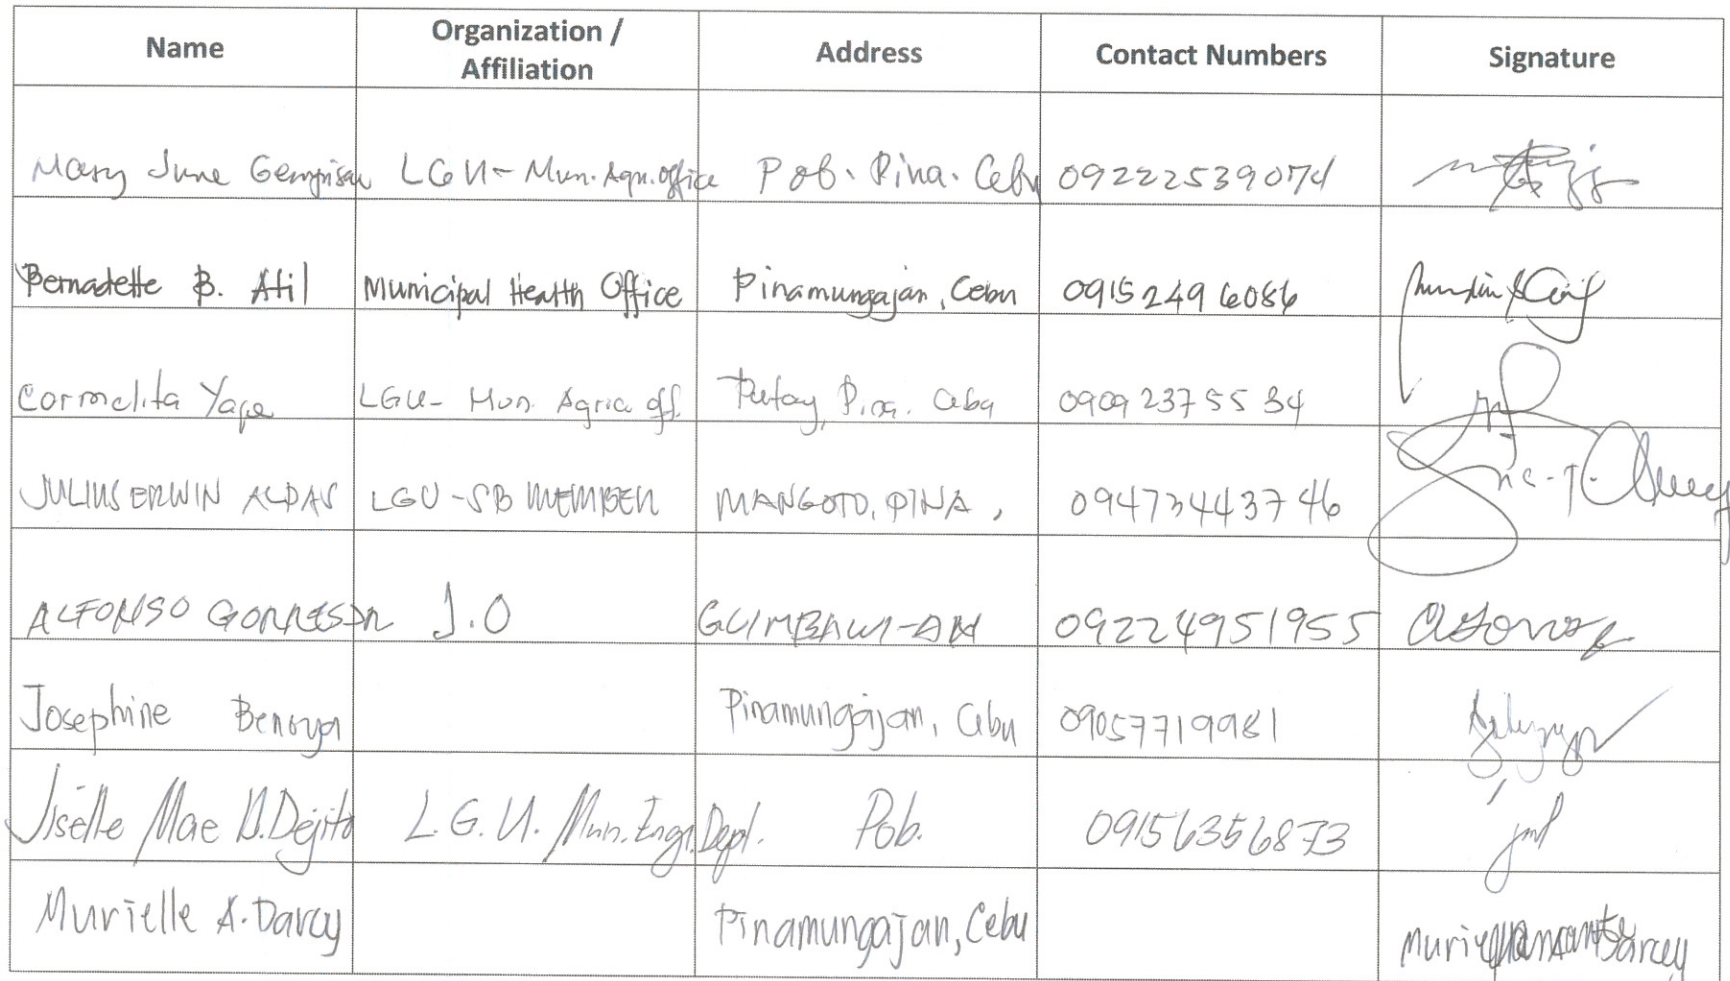 Name Organization / Affiliation Address Contact Numbers Signature
Mary June Gempisau LGU- Mun. Agri. office Pob. Pina. Cebu 09222539074
Bernadette B. Atil Municipal Health Office Pinamungajan, Cebu 09152496086
Carmelita Yape LGU- Mun. Agric off. Tutay, Pina. Cebu 09092375534
JULIUS ERWIN ALPAS LGU-SB MEMBER MANGOTO, PINA, 09473443746
ALFONSO GORRES JR J.O GUIMBAWI-AN 09224951955
Josephine Benoya Pinamungajan, Cebu 09057719981
Jiselle Mae D. Dejito L.G.U. Mun. Engr. Dept. Pob. 09156356873
Murielle A. Darcy Pinamungajan, Cebu